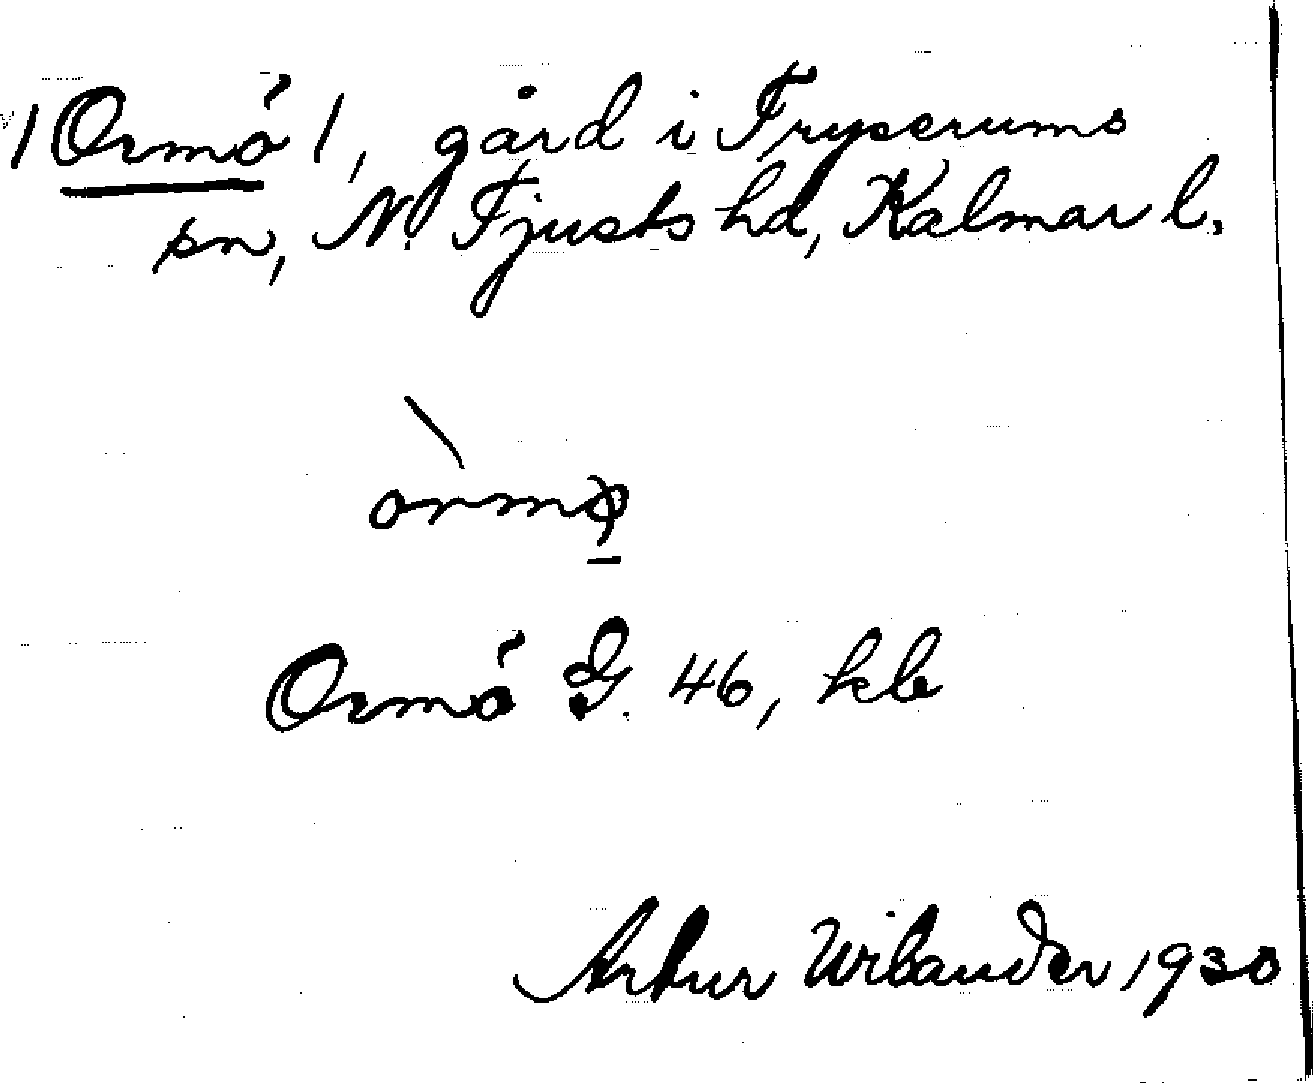 /Ormö/, gård i Tryserums
sn, N. Tjusts hd, Kalmar l.
òrmø
Ormö G. 46, kb
Artur Wilander 1930